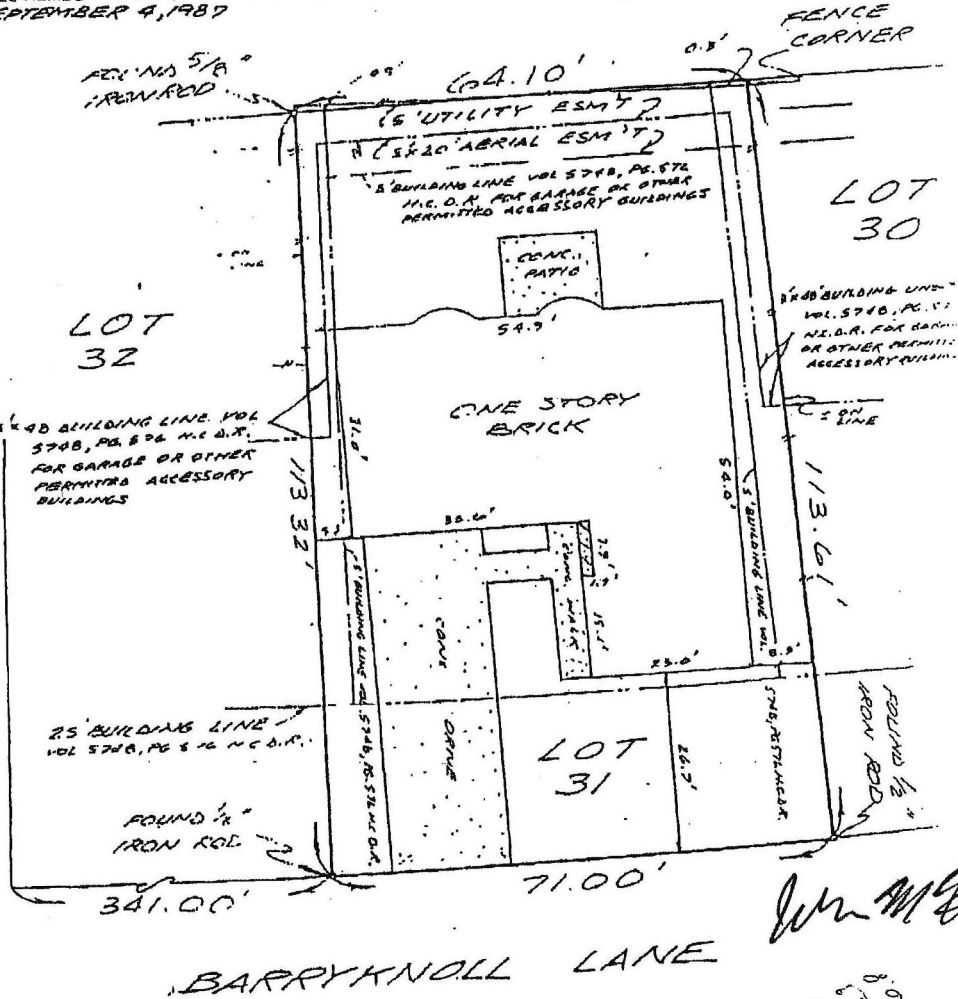 SEPTEMBER 4, 1987
FENCE
CORNER
FOUND 5/8"
IRON ROD
0.3'
64.10'
5' UTILITY ESM'T
5'X20' AERIAL ESM'T
BUILDING LINE VOL 5748, PG. 576
H.C.D.R. FOR GARAGE OR OTHER
PERMITTED ACCESSORY BUILDINGS
LOT
30
ON
LINE
CONC.
PATIO
LOT
32
54.9'
BUILDING LINE
VOL. 5748, PG.
FOR
OR OTHER
ACCESSORY
ONE STORY
BRICK
ON
LINE
BUILDING LINE VOL
5748, PG. 576 H.C.D.R.
FOR GARAGE OR OTHER
PERMITTED ACCESSORY
BUILDINGS
31.0'
113.32'
54.0'
5' BUILDING LINE VOL.
5748, PG. 576 H.C.D.R.
113.61'
5' BUILDING LINE VOL. 5748, PG. 576 H.C.D.R.
CONC
DRIVE
CONC. WALK
15.1'
25.0'
25' BUILDING LINE
VOL 5748, PG 576 H.C.D.R.
LOT
31
26.7'
FOUND 1/2"
IRON ROD
FOUND
IRON ROD
341.00'
71.00'
BARRYKNOLL LANE